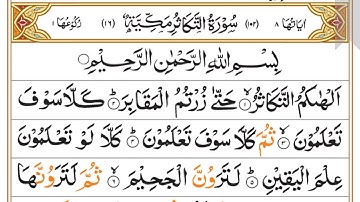 اٰیَاتُهَا ٨ (١٠٢) سُوْرَةُ التَّكَاثُرِ مَكِّيَّةٌ (١٦) رُكُوْعُهَا ١
بِسْمِ اللّٰهِ الرَّحْمٰنِ الرَّحِيْمِ
اَلْهٰىكُمُ التَّكَاثُرُ ۙ١ حَتّٰى زُرْتُمُ الْمَقَابِرَ ؕ٢ كَلَّا سَوْفَ
تَعْلَمُوْنَ ۙ٣ ثُمَّ كَلَّا سَوْفَ تَعْلَمُوْنَ ؕ٤ كَلَّا لَوْ تَعْلَمُوْنَ
عِلْمَ الْيَقِيْنِ ؕ٥ لَتَرَوُنَّ الْجَحِيْمَ ۙ٦ ثُمَّ لَتَرَوُنَّهَا